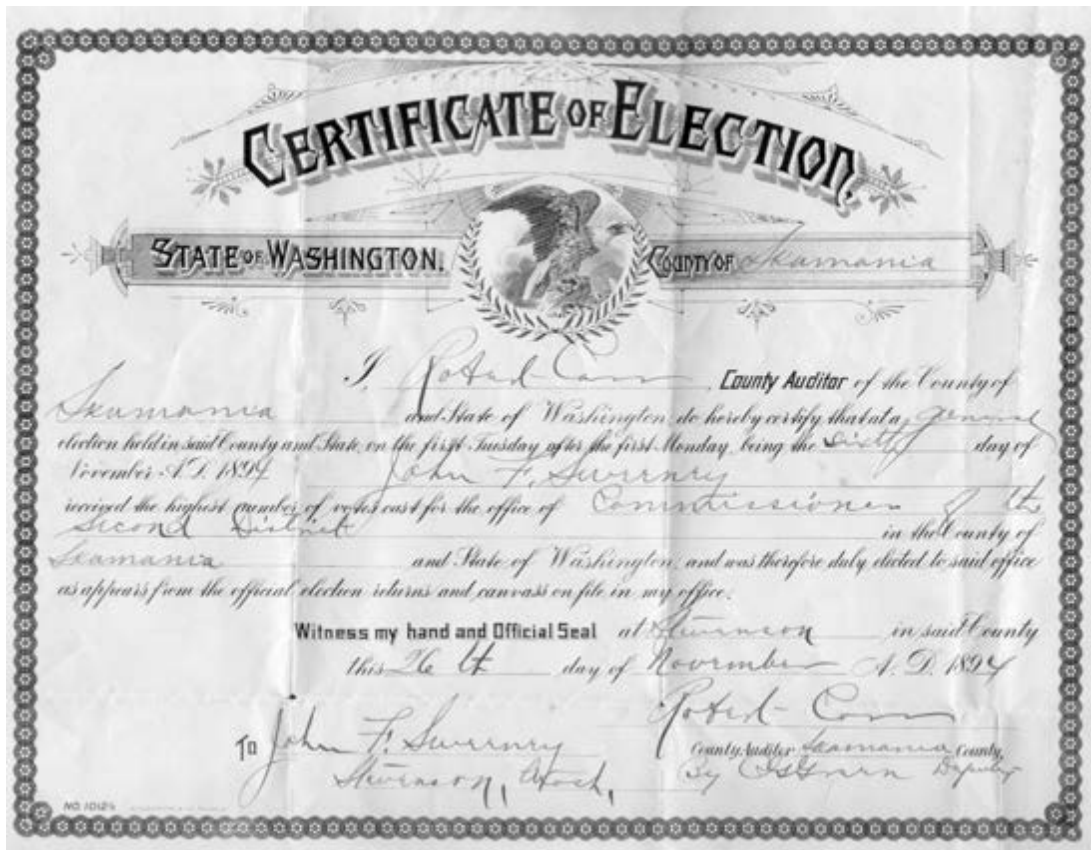 CERTIFICATE OF ELECTION.
STATE OF WASHINGTON. COUNTY OF Skamania
I, Robert Carr, County Auditor of the County of
Skamania and State of Washington, do hereby certify that at a general
election held in said County and State, on the first Tuesday after the first Monday, being the sixth day of
November A.D. 1894 John F. Sweeney
received the highest number of votes cast for the office of Commissioner of the
Second District in the County of
Skamania and State of Washington, and was therefore duly elected to said office
as appears from the official election returns and canvass on file in my office.
Witness my hand and Official Seal at Stevenson in said County
this 26th day of November A.D. 1894
Robert Carr
To John F. Sweeney County Auditor Skamania County,
Stevenson, Wash, By Deputy
NO. 10124